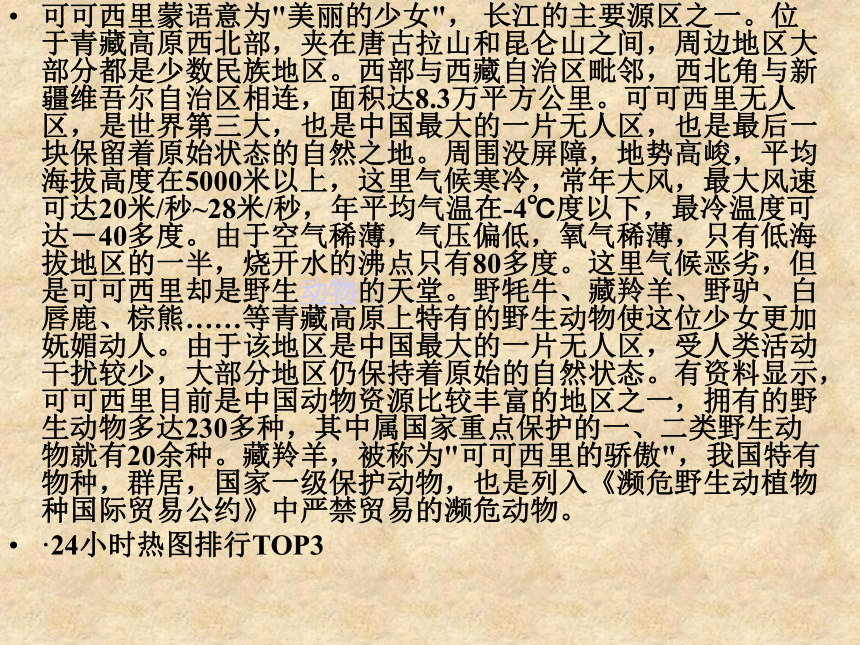 • 可可西里蒙语意为"美丽的少女"， 长江的主要源区之一。位
于青藏高原西北部，夹在唐古拉山和昆仑山之间，周边地区大
部分都是少数民族地区。西部与西藏自治区毗邻，西北角与新
疆维吾尔自治区相连，面积达8.3万平方公里。可可西里无人
区，是世界第三大，也是中国最大的一片无人区，也是最后一
块保留着原始状态的自然之地。周围没屏障，地势高峻，平均
海拔高度在5000米以上，这里气候寒冷，常年大风，最大风速
可达20米/秒~28米/秒，年平均气温在-4℃度以下，最冷温度可
达－40多度。由于空气稀薄，气压偏低，氧气稀薄，只有低海
拔地区的一半，烧开水的沸点只有80多度。这里气候恶劣，但
是可可西里却是野生动物的天堂。野牦牛、藏羚羊、野驴、白
唇鹿、棕熊……等青藏高原上特有的野生动物使这位少女更加
妩媚动人。由于该地区是中国最大的一片无人区，受人类活动
干扰较少，大部分地区仍保持着原始的自然状态。有资料显示，
可可西里目前是中国动物资源比较丰富的地区之一，拥有的野
生动物多达230多种，其中属国家重点保护的一、二类野生动
物就有20余种。藏羚羊，被称为"可可西里的骄傲"，我国特有
物种，群居，国家一级保护动物，也是列入《濒危野生动植物
种国际贸易公约》中严禁贸易的濒危动物。
• ·24小时热图排行TOP3